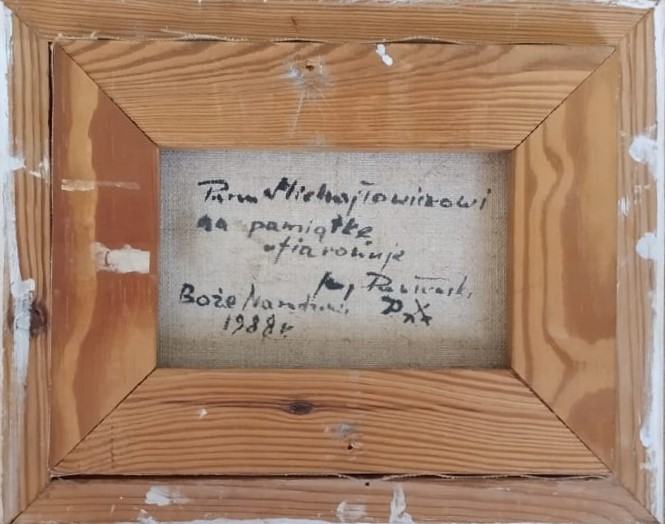 Panu Michajłowiczowi
na pamiątkę
ofiarowuje
Boże Narodzenie
1988r.